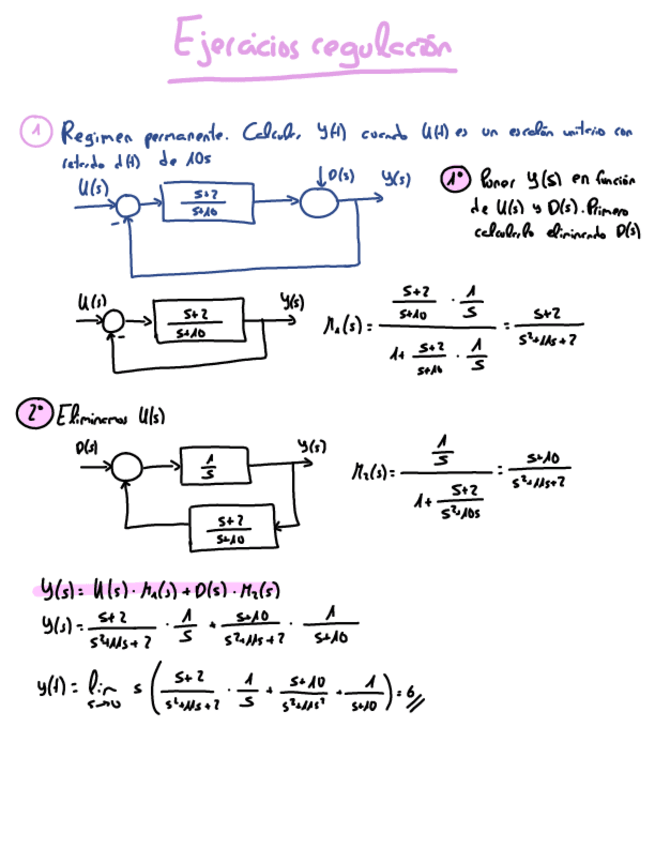 Ejercicios regulación
1 Regimen permanente. Calcular y(t) cuando U(t) es un escalón unitario con
retardo d(t) de 10s
U(s) - s+2 / s+10 D(s) Y(s)
1º Poner Y(s) en función
de U(s) y D(s). Primero
calcularlo eliminando D(s)
U(s) - s+2 / s+10 Y(s)
M₁(s) = (s+2 / s+10 · 1 / s) / (1 + s+2 / s+10 · 1 / s) = s+2 / s²+11s+2
2º Eliminamos U(s)
D(s) 1 / s Y(s)
s+2 / s+10
M₂(s) = (1 / s) / (1 + s+2 / s²+10s) = s+10 / s²+11s+2
Y(s) = U(s) · M₁(s) + D(s) · M₂(s)
Y(s) = s+2 / s²+11s+2 · 1 / s + s+10 / s²+11s+2 · 1 / s+10
y(t) = lim s→0 s (s+2 / s²+11s+2 · 1 / s + s+10 / s²+11s² + 1 / s+10) = 6 //